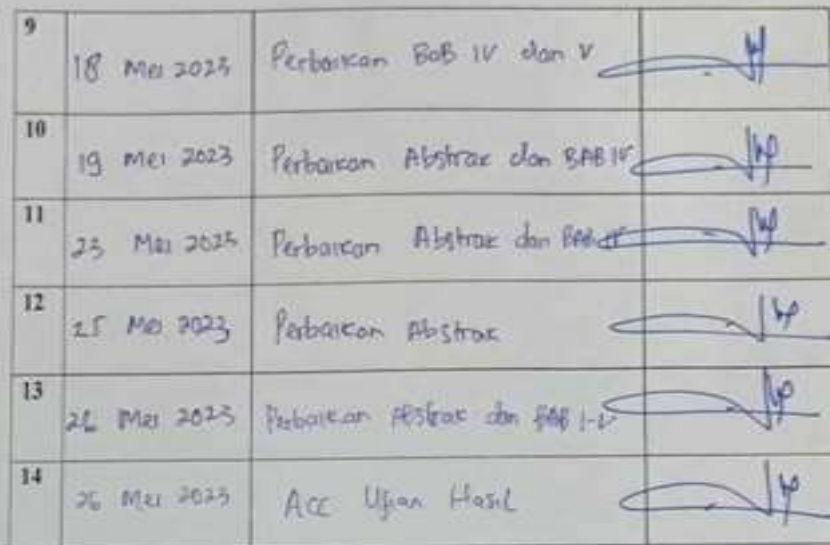 9
18 Mei 2023 Perbaikan BAB IV dan V
10
19 Mei 2023 Perbaikan Abstrak dan BAB IV
11
23 Mei 2023 Perbaikan Abstrak dan BAB
12
25 Mei 2023 Perbaikan Abstrak
13
26 Mei 2023 Perbaikan Abstrak dan BAB I-V
14
26 Mei 2023 Acc Ujian Hasil